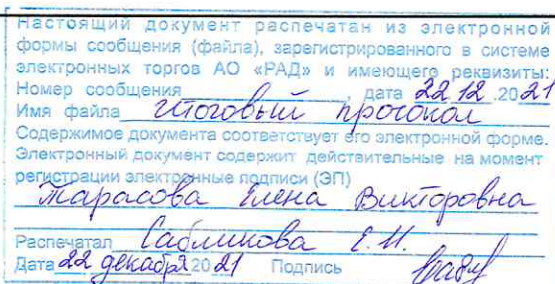 Настоящий документ распечатан из электронной
формы сообщения (файла), зарегистрированного в системе
электронных торгов АО «РАД» и имеющего реквизиты:
Номер сообщения , дата 22 12 .2021
Имя файла итоговый протокол
Содержимое документа соответствует его электронной форме.
Электронный документ содержит действительные на момент
регистрации электронные подписи (ЭП)
Тарасова Елена Викторовна
Распечатал Сабликова Е.Н.
Дата 22 декабря 2021 Подпись